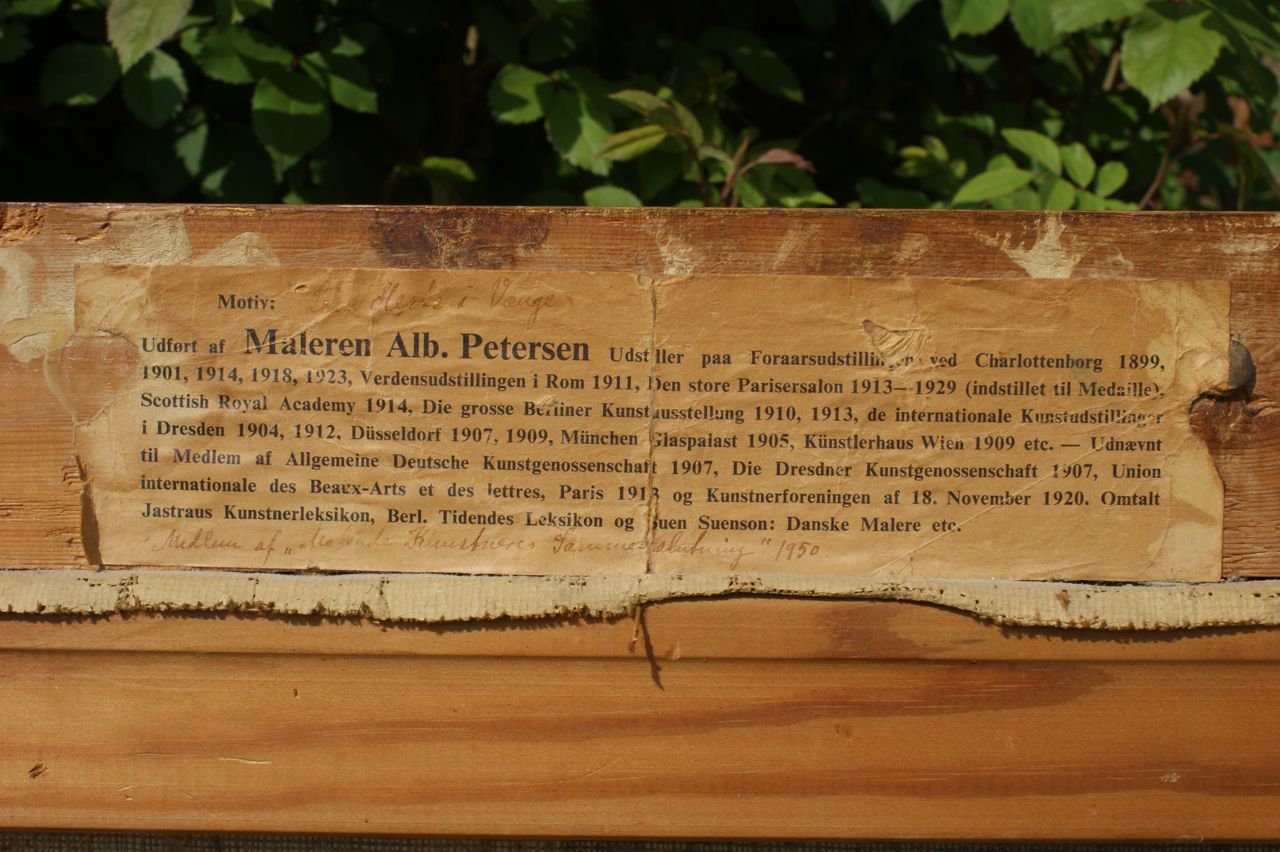 Motiv: i
Udført af Maleren Alb. Petersen Udstiller paa Foraarsudstillingen ved Charlottenborg 1899,
1901, 1914, 1918, 1923, Verdensudstillingen i Rom 1911, Den store Parisersalon 1913—1929 (indstillet til Medaille),
Scottish Royal Academy 1914, Die grosse Berliner Kunstausstellung 1910, 1913, de internationale Kunstudstillinger
i Dresden 1904, 1912, Düsseldorf 1907, 1909, München Glaspalast 1905, Künstlerhaus Wien 1909 etc. — Udnævnt
til Medlem af Allgemeine Deutsche Kunstgenossenschaft 1907, Die Dresdner Kunstgenossenschaft 1907, Union
internationale des Beaux-Arts et des lettres, Paris 1913 og Kunstnerforeningen af 18. November 1920. Omtalt
Jastraus Kunstnerleksikon, Berl. Tidendes Leksikon og Suen Suenson: Danske Malere etc.
Medlem af „ Kunstneres Sammenslutning" 1950.